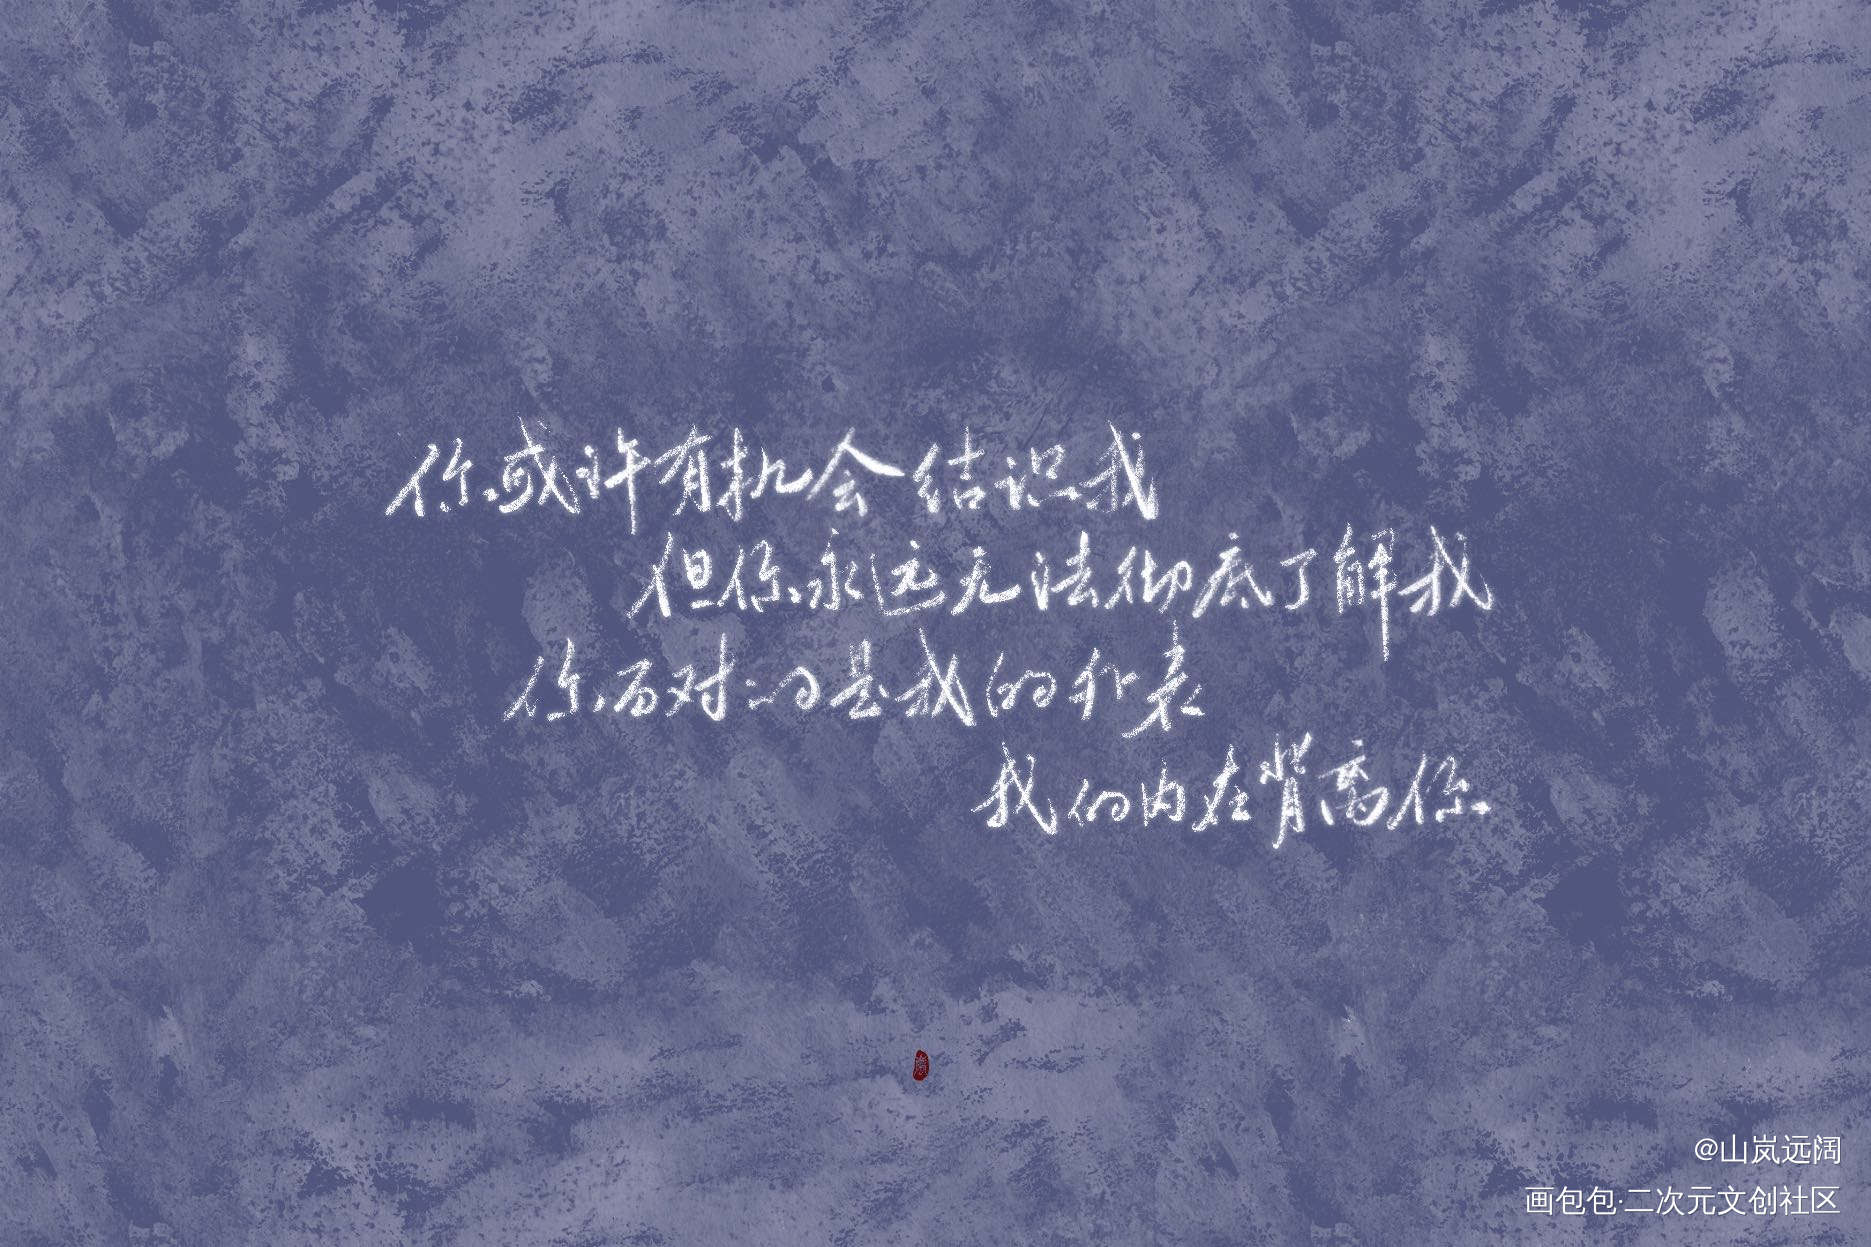 你或许有机会结识我
但你永远无法彻底了解我
你面对的是我的外表
我的内在背离你
@山岚远阔
画包包·二次元文创社区